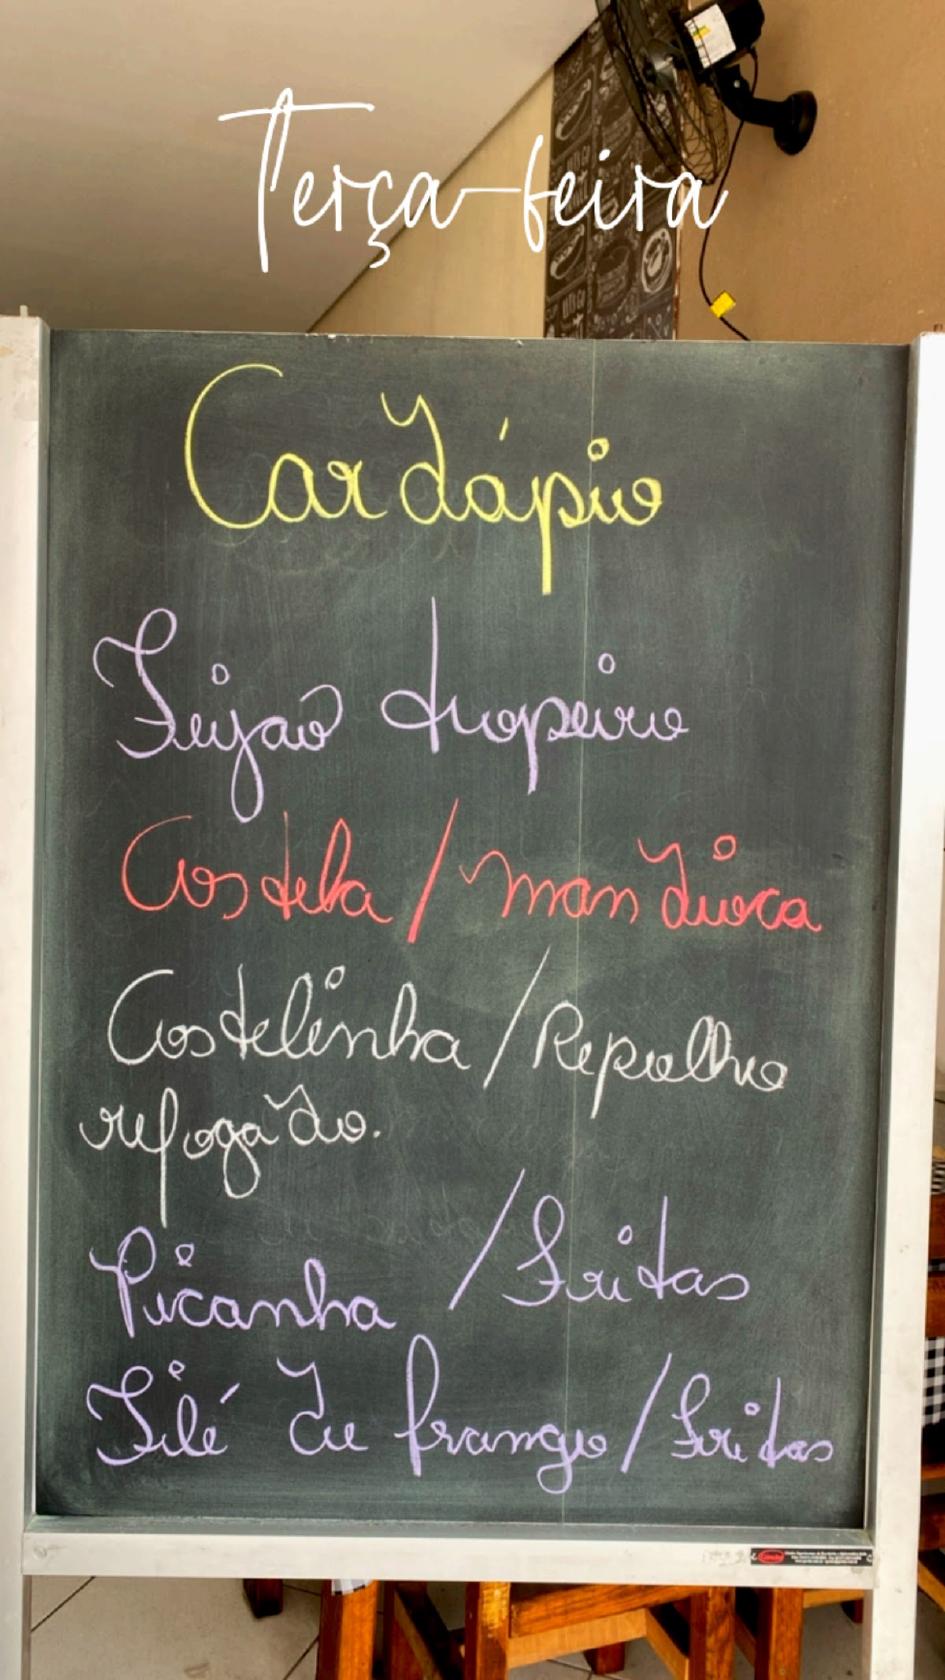 Terça-feira
Cardápio
Feijão tropeiro
Costela / mandioca
Costelinha / Repolho
refogado.
Picanha / Fritas
Filé de frango / Fritas